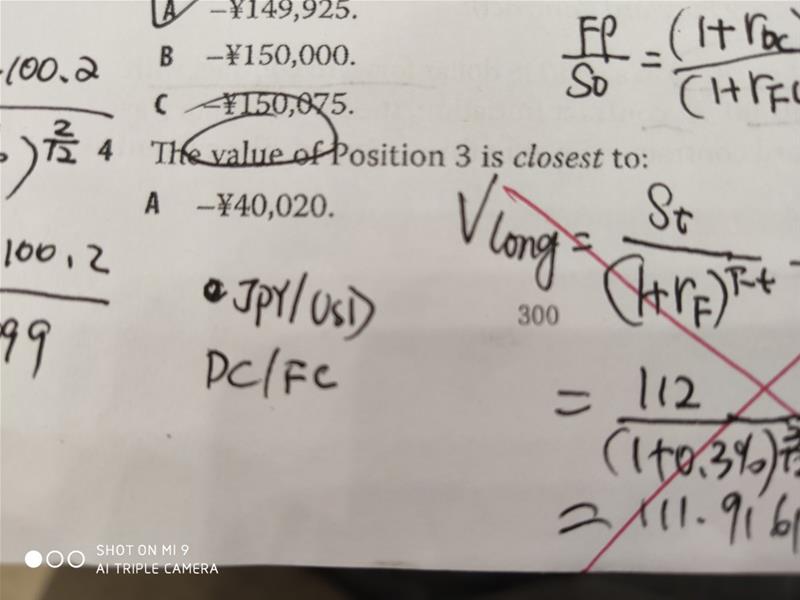 A –¥149,925.
B –¥150,000.
C –¥150,075.
4 The value of Position 3 is closest to:
A –¥40,020.
300
100.2
2/12
100.2
99
FP/S0 = (1+rDC / (1+rFC
Vlong = St / (1+rF)^T-t -
JPY/USD
DC/FC
= 112 / (1+0.3%)
= 111.916
SHOT ON MI 9
AI TRIPLE CAMERA